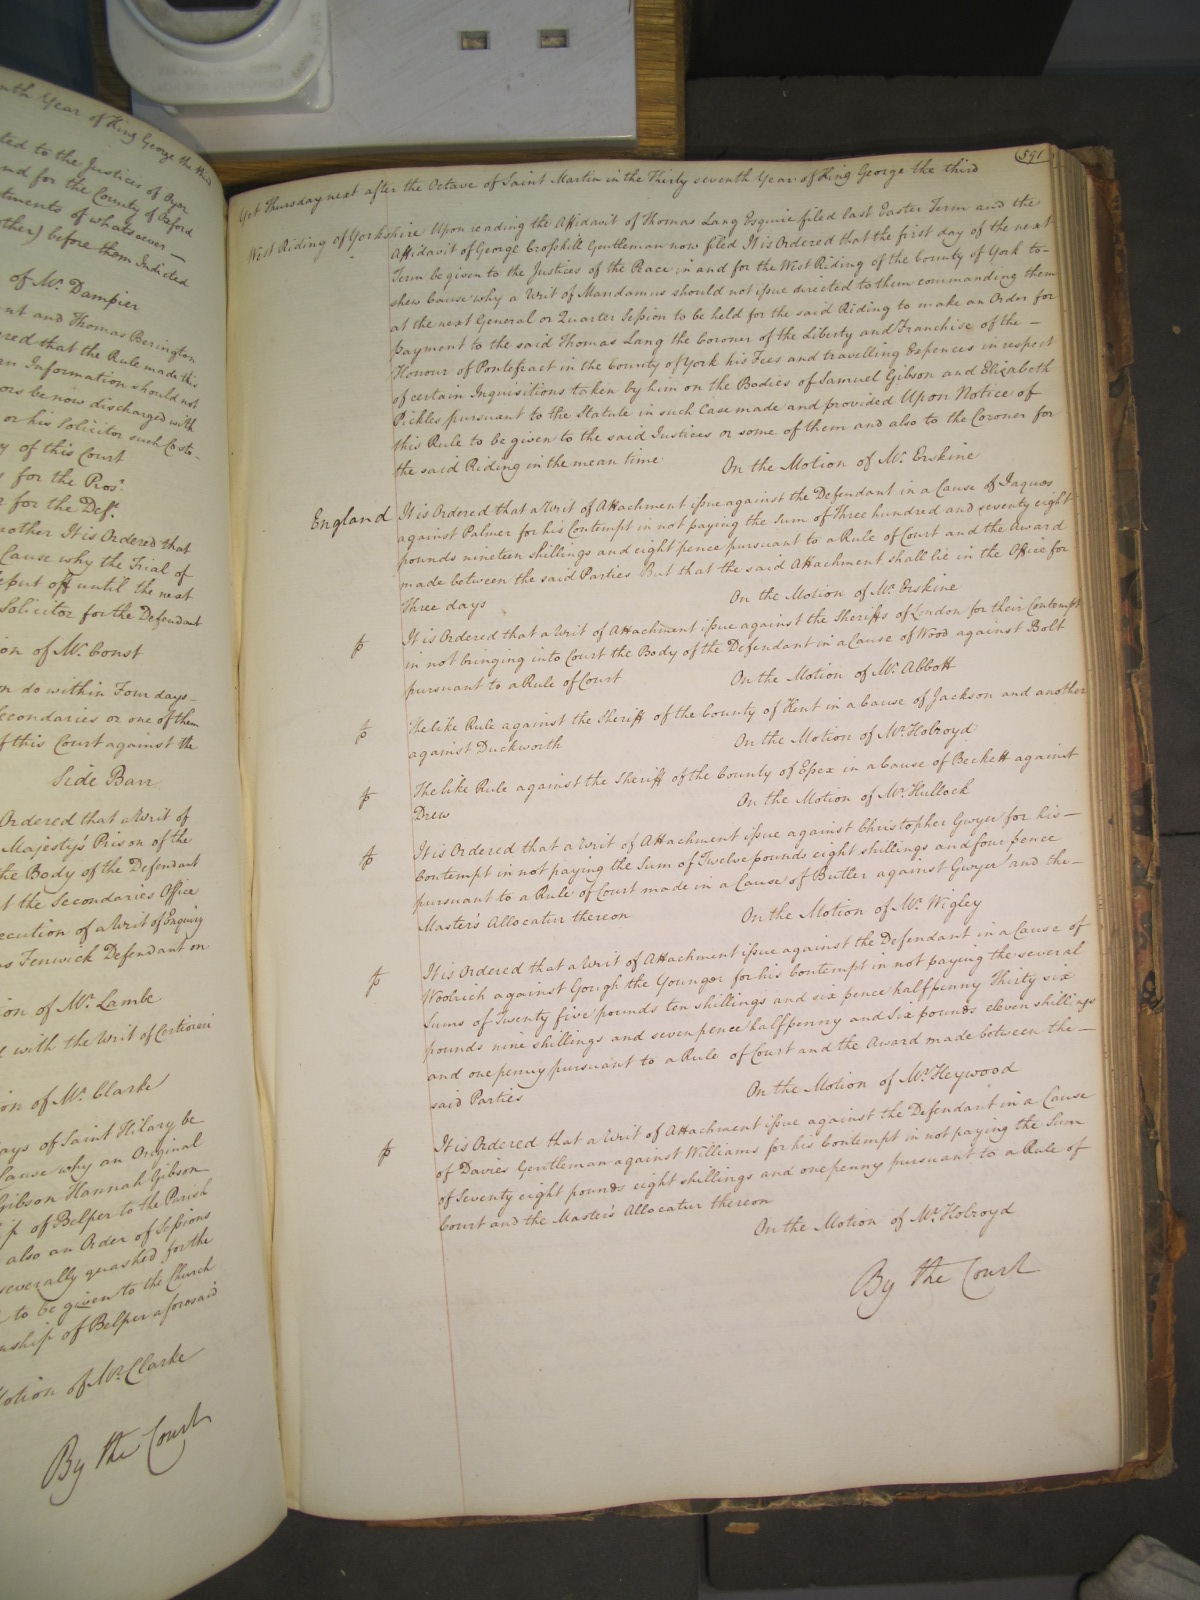 nth Year of King George the third
ted to the Justices of Oyer
and for the County of Oxford
tments of whatsoever
other) before them Indicted
of Mr. Dampier
nt and Thomas Berington
ered that the Rule made this
an Information should not
ors be now discharged with
or his Solicitor such Costs
y of this Court
for the Pros.r
for the Def.t
nother It is Ordered that
Cause why the Trial of
eput off until the next
Solicitor for the Defendant
on of Mr. Const
n do within Four days
Secondaries or one of them
f this Court against the
Side Barr
Ordered that a Writ of
Majesty's Prison of the
the Body of the Defendant
t the Secondaries Office
ecution of a Writ of Enquiry
as Fenwick Defendant on
ion of Mr. Lambe
d with the Writ of Certiorari
on of Mr. Clarke
ays of Saint Hilary be
Cause why an Original
Gibson Hannah Gibson
ip of Belper to the Parish
also an Order of Sessions
severally quashed for the
to be given to the Church
nship of Belper aforesaid
Motion of Mr. Clarke
By the Court
591
Yet Thursday next after the Octave of Saint Martin in the Thirty seventh Year of King George the third
West Riding of Yorkshire Upon reading the Affidavit of Thomas Lang Esquire filed last Easter Term and the
Affidavit of George Crosshill Gentleman now filed It is Ordered that the first day of the next
Term be given to the Justices of the Peace in and for the West Riding of the County of York to
shew Cause why a Writ of Mandamus should not issue directed to them commanding them
at the next General or Quarter Session to be held for the said Riding to make an Order for
payment to the said Thomas Lang the Coroner of the Liberty and Franchise of the
Honour of Pontefract in the County of York his Fees and travelling Expences in respect
of certain Inquisitions taken by him on the Bodies of Samuel Gibson and Elizabeth
Pickles pursuant to the Statute in such Case made and provided Upon Notice of
this Rule to be given to the said Justices or some of them and also to the Coroner for
the said Riding in the mean time On the Motion of Mr. Erskine
England It is Ordered that a Writ of Attachment issue against the Defendant in a Cause of Jaques
against Palmer for his Contempt in not paying the Sum of Three hundred and seventy eight
pounds nineteen shillings and eight pence pursuant to a Rule of Court and the Award
made between the said Parties But that the said Attachment shall lie in the Office for
Three days On the Motion of Mr. Erskine
It is Ordered that a Writ of Attachment issue against the Sheriffs of London for their Contempt
in not bringing into Court the Body of the Defendant in a Cause of Wood against Bolt
pursuant to a Rule of Court On the Motion of Mr. Abbott
The like Rule against the Sheriff of the County of Kent in a Cause of Jackson and another
against Duckworth On the Motion of Mr. Holroyd
The like Rule against the Sheriff of the County of Essex in a Cause of Beckett against
Drew On the Motion of Mr. Hullock
It is Ordered that a Writ of Attachment issue against Christopher Gwyer for his
Contempt in not paying the Sum of Twelve pounds eight shillings and four pence
pursuant to a Rule of Court made in a Cause of Butler against Gwyer and the
Master's Allocatur thereon On the Motion of Mr. Wigley
It is Ordered that a Writ of Attachment issue against the Defendant in a Cause of
Woolrich against Gough the Younger for his Contempt in not paying the several
Sums of Twenty five pounds ten shillings and six pence halfpenny Thirty six
pounds nine shillings and seven pence halfpenny and Six pounds eleven shillings
and one penny pursuant to a Rule of Court and the Award made between the
said Parties On the Motion of Mr. Heywood
It is Ordered that a Writ of Attachment issue against the Defendant in a Cause
of Davies Gentleman against Williams for his Contempt in not paying the Sum
of Seventy eight pounds eight shillings and one penny pursuant to a Rule of
Court and the Master's Allocatur thereon
On the Motion of Mr. Holroyd
By the Court